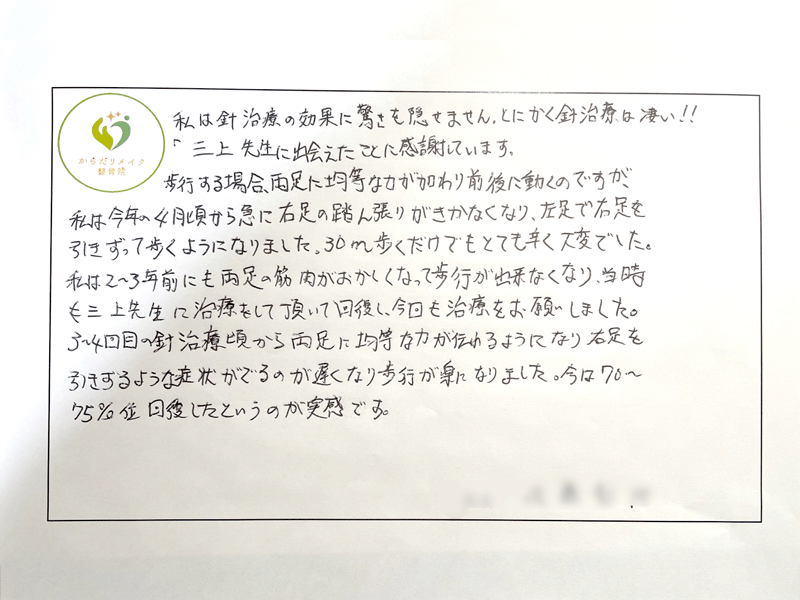 からだリメイク
整骨院
私は針治療の効果に驚きを隠せません。とにかく針治療は凄い!!
「三上先生に出会えたことに感謝しています。
歩行する場合、両足に均等な力が加わり前後に動くのですが、
私は今年の4月頃から急に右足の踏ん張りがきかなくなり、左足で右足を
引きずって歩くようになりました。30m歩くだけでもとても辛く大変でした。
私は2〜3年前にも両足の筋肉がおかしくなって歩行が出来なくなり、当時
も三上先生に治療をして頂いて回復し、今回も治療をお願いしました。
3〜4回目の針治療頃から両足に均等な力が伝わるようになり右足を
引きずるような症状がでるのが遅くなり歩行が楽になりました。今は70〜
75%位回復したというのが実感です。